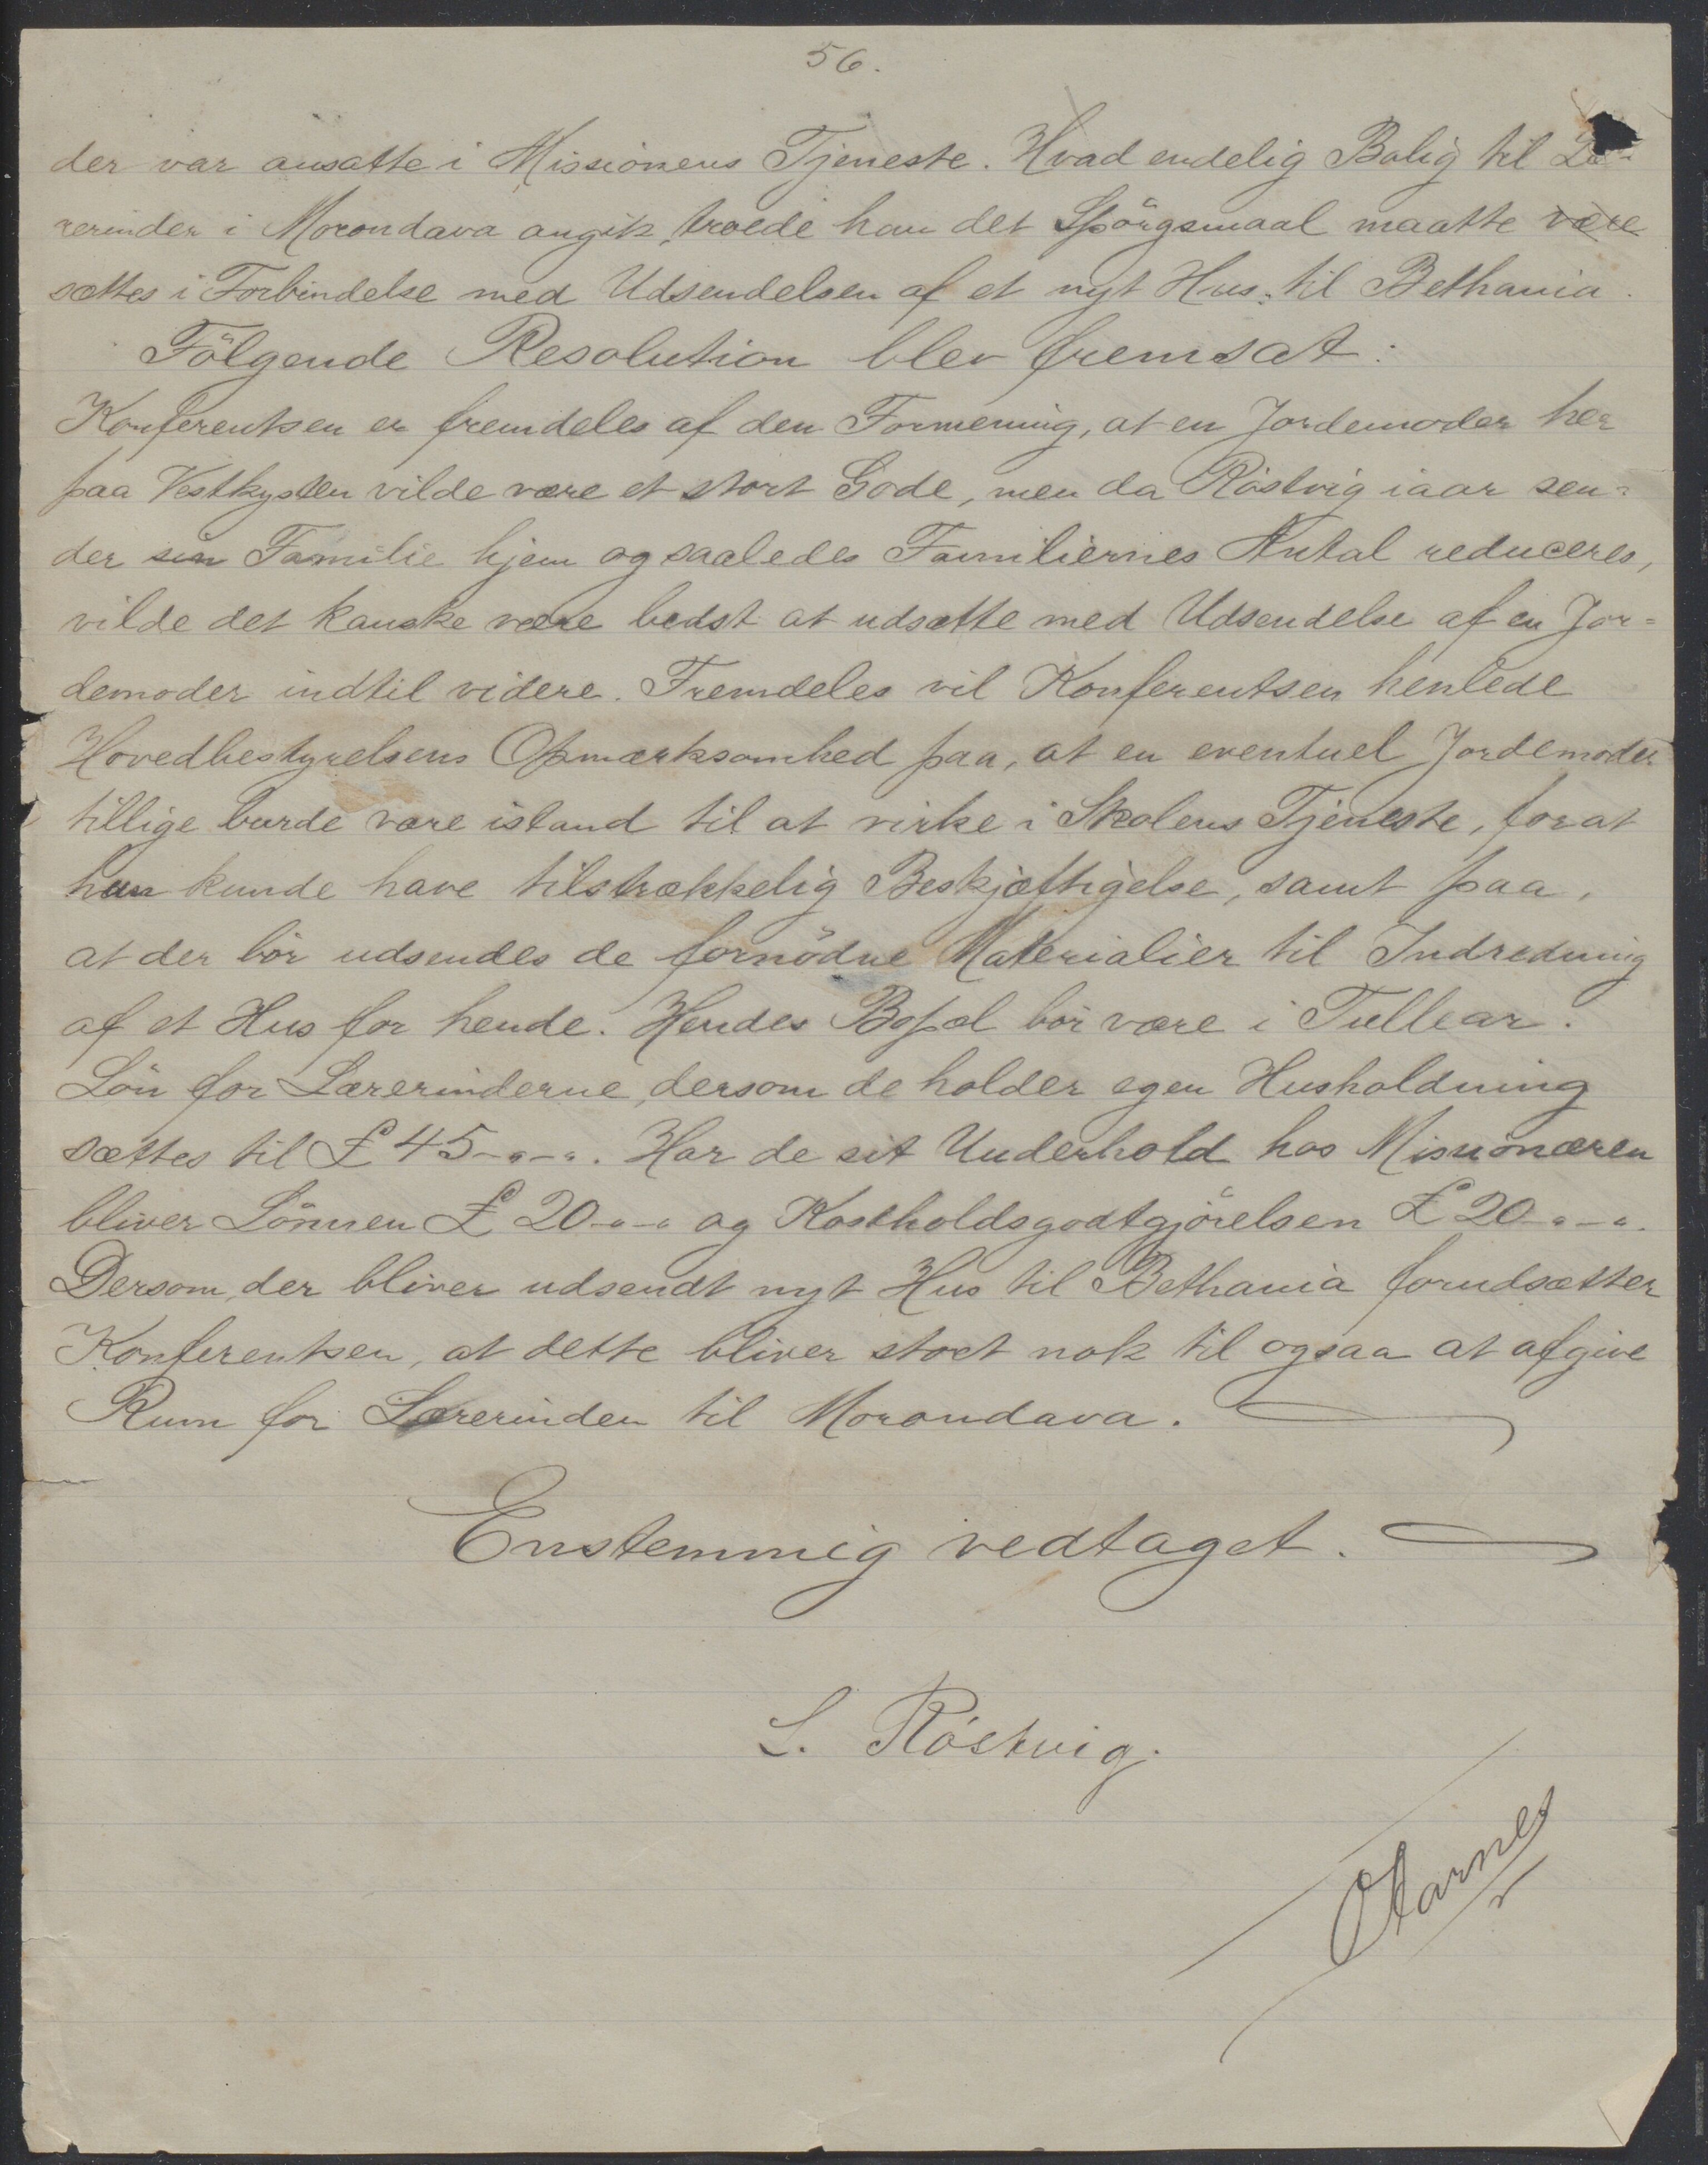 56.
der var ansatte i Missionens Tjeneste. Hvad endelig Bolig til Læ-
rerinder i Morondava angik, troede han det Spörgsmaal maatte være
sættes i Forbindelse med Udsendelsen af et nyt Hus til Bethania.
Fölgende Resolution blev fremsat:
Konferentsen er fremdeles af den Formening, at en Jordemoder her
paa Vestkysten vilde være et stort Gode, men da Röstvig iaar sen-
der sin Familie hjem og saaledes Familiernes Antal reduceres,
vilde det kanske være bedst at udsætte med Udsendelse af en Jor=
demoder indtil videre. Fremdeles vil Konferentsen henlede
Hovedbestyrelsens Opmærksomhed paa, at en eventuel Jordemoder
tillige burde være istand til at virke i Skolens Tjeneste, forat
hun kunde have tilstrækkelig Beskjæftigelse, samt paa,
at der bör udsendes de fornödne Materialier til Indredning
af et Hus for hende. Hendes Bopæl bör være i Tullear.
Lön for Lærerinderne, dersom de holder egen Husholdning
sættes til £ 45-"-". Har de sit Underhold hos Missionæren
bliver Lönnen £ 20-"-" og Kostholdsgodtgjörelsen £ 20-"-".
Dersom der bliver udsendt nyt Hus til Bethania forudsætter
Konferentsen, at dette bliver stort nok til ogsaa at afgive
Rum for Lærerinden til Morondava.
Enstemmig vedtaget.
L. Röstvig.